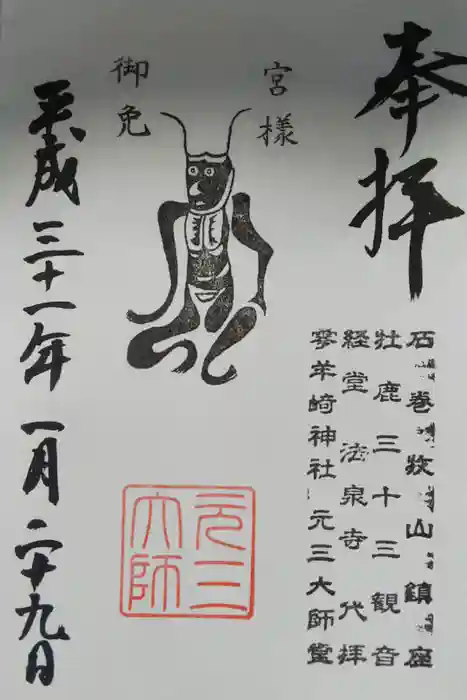 奉拝
石巻牧山鎮座
牡鹿三十三観音
経堂 法泉寺 代拝
零羊崎神社 元三大師堂
宮様
御免
元三
大師
平成三十一年 一月二十九日